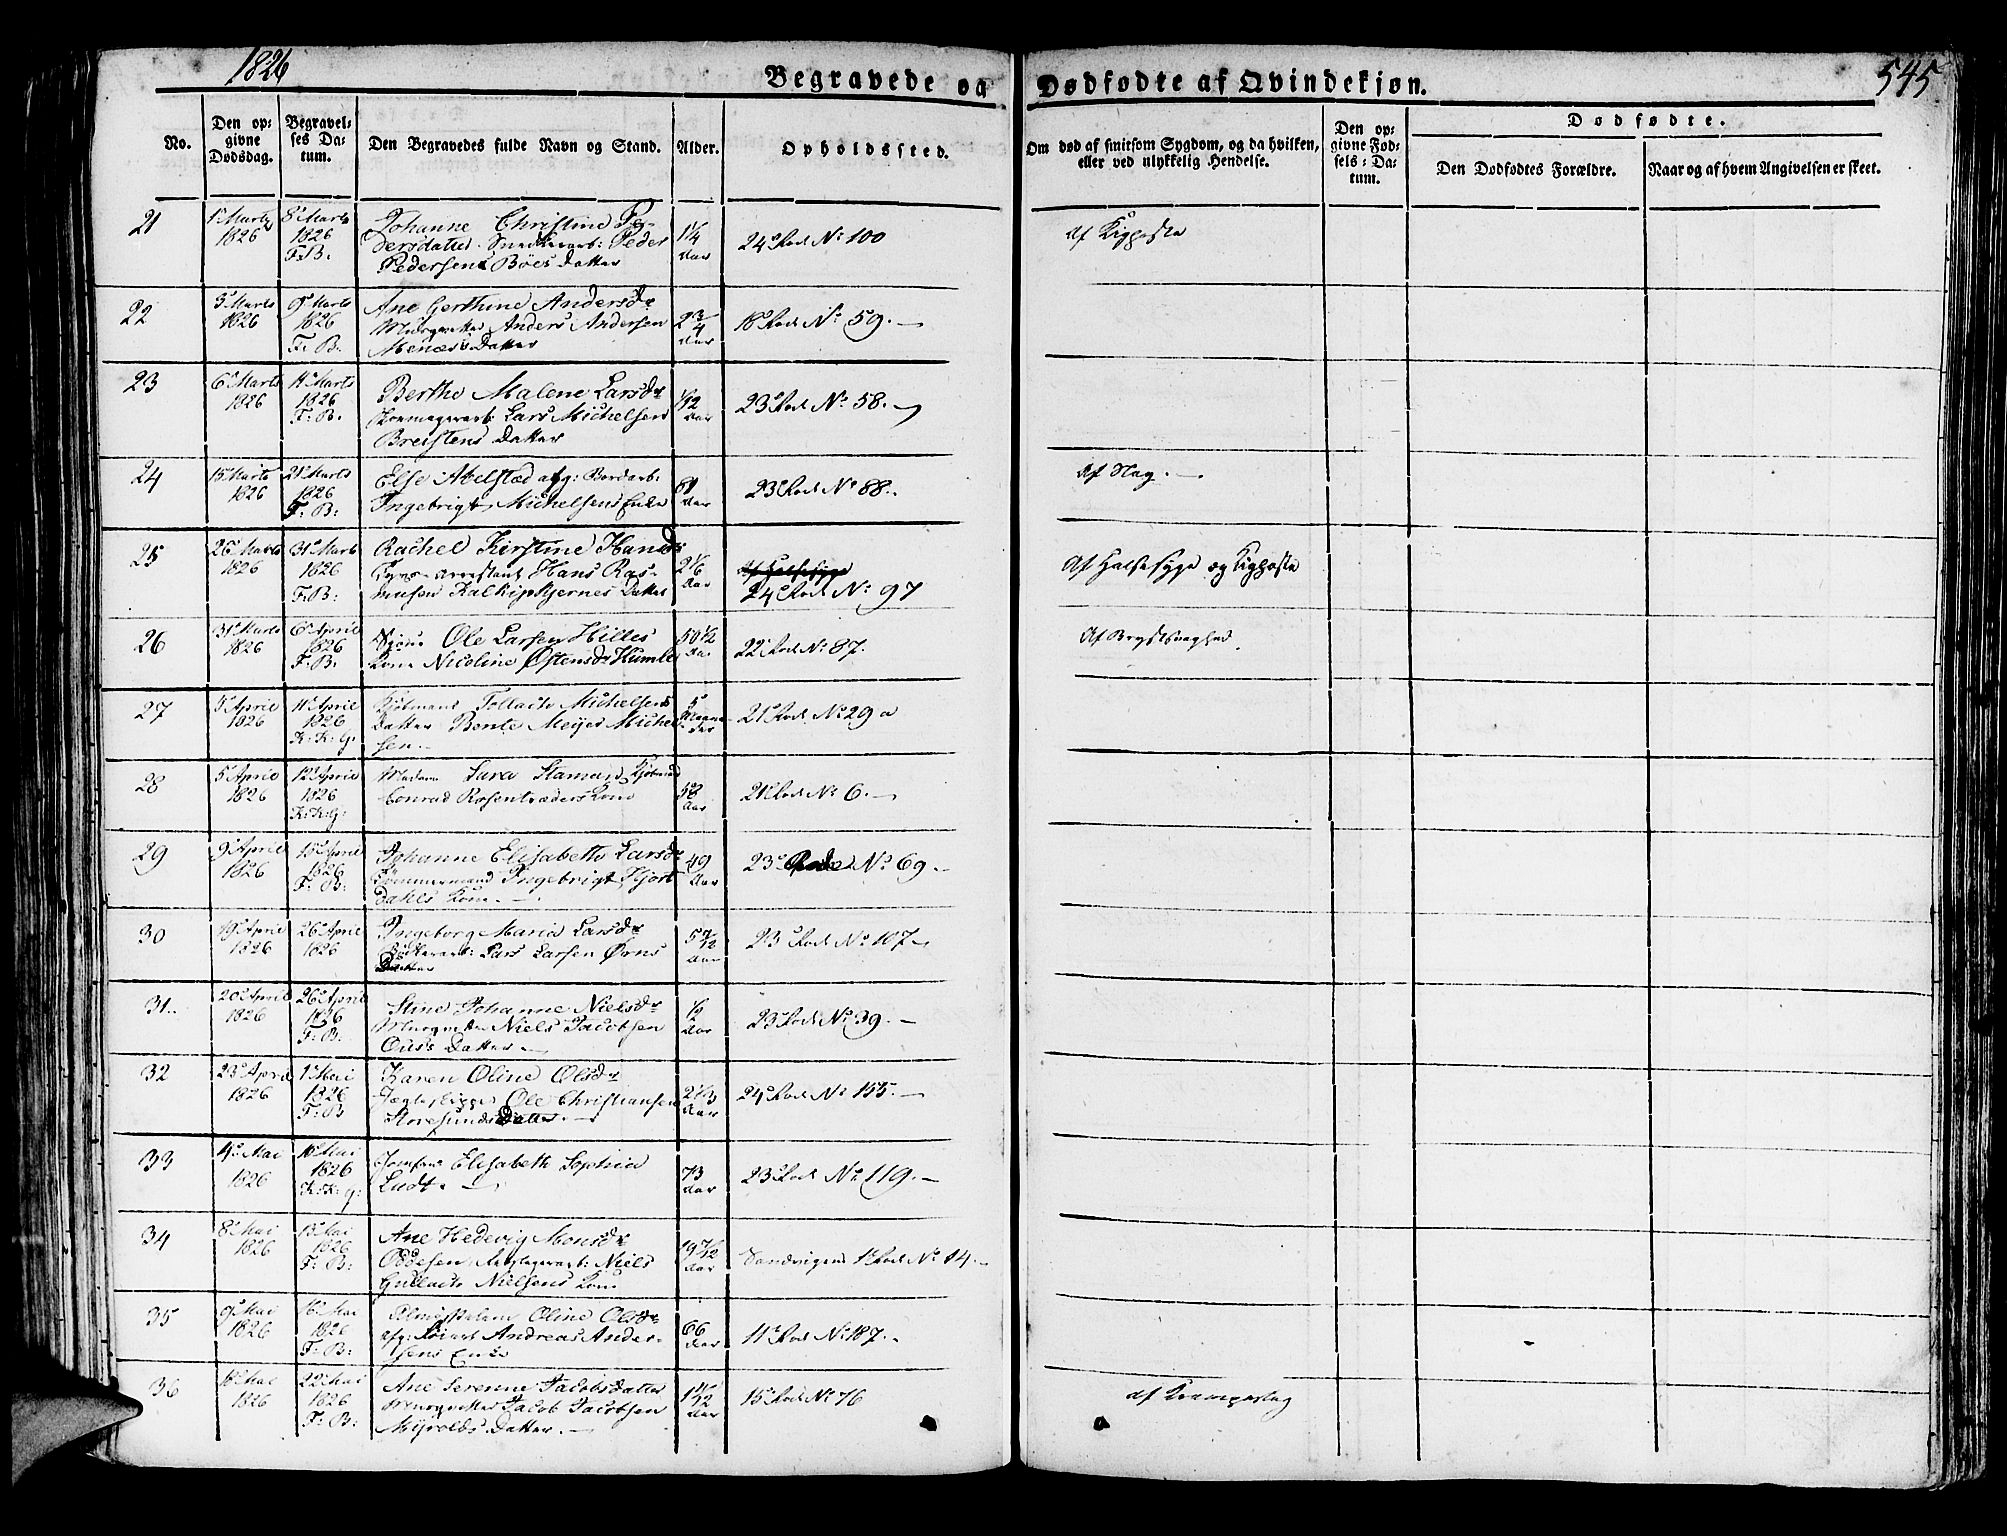 1826
Begravede og Dødfødte af Qvindekjøn.
545
No.
Den op-
givne
Dødsdag.
Begravel-
ses Da-
tum.
Den Begravedes fulde Navn og Stand.
Alder.
Opholdssted.
Om død af smitsom Sygdom, og da hvilken,
eller ved ulykkelig Hendelse.
Den op-
givne Fød-
sels-Da-
tum.
Dødfødte.
Den Dødfødtes Forældre.
Naar og af hvem Angivelsen er skeet.
21
1ᵉ Marts
1826
8ᵉ Marts
1826
F: B:
Johanne Christine Pe-
dersdatter. Snedkerarb: Peder
Pedersens Böes Datter
1 1/4
Aar
24ᵉ Rode No 100
Af Kighoste
22
5ᵉ Marts
1826
9ᵉ Marts
1826
F: B:
Ane Gerthine Andersdr
Anders Andersen
Datter
2 3/4
Aar
18ᵉ Rode No 59.
23
6ᵉ Marts
1826
11ᵉ Marts
1826
F: B:
Berthe Malene Larsdr
Lars Michelsen
Breistens Datter
1/12
Aar
23ᵉ Rode No 58.
24
15ᵉ Marts
1826
21ᵉ Marts
1826
F: B:
Else Abelsted afg: Bordarb:
Ingebrigt Michelsens Enke
Aar
23ᵉ Rode No 88.
Af Slag.
25
26ᵉ Marts
1826
31ᵉ Marts
1826
F: B:
Rachel Kirstine Hansdr
Hans Ras-
musen Datter
2 1/6
Aar
Af Halsesyge
24ᵉ Rode No 97
Af Halsesyge og Kighoste
26
31ᵉ Marts
1826
6ᵉ April
1826
F: B:
Ole Larsen Hilles
Kone Nicoline Østensdr Humle
50 1/2
Aar
22ᵉ Rode No 87.
Af Brystsvaghed.
27
5ᵉ April
1826
11ᵉ April
1826
K: K: G:
Kjøbmand Tollach Michelsens
Datter Bente Meyer Michel-
sen.
5
Maane-
der
21ᵉ Rode No 29 a
28
5ᵉ April
1826
12ᵉ April
1826
K: K: G:
Madame Sara Kjøbmand
Conrad Rosentræders Kone
58
Aar
21ᵉ Rode No 6.
29
9ᵉ April
1826
15ᵉ April
1826
F: B:
Johanne Elisabeth Larsdr
Tömmermand Ingebrigt Hjort-
dahls Kone.
49
Aar
23ᵉ Rode No 69.
30
19ᵉ April
1826
26ᵉ April
1826
Ingeborg Maria Larsdr
Bödkerarb: Lars Larsen Örns
Datter
5
Aar
23ᵉ Rode No 107
31.
20ᵉ April
1826
26ᵉ April
1826
F: B:
Stine Johanne Nielsdr
Niels Jacobsen
Datter
1/2
Aar
23ᵉ Rode No 39.
32
23ᵉ April
1826
1ᵉ Mai
1826
F: B
Karen Oline Olsdr
Jægteskipper Ole Christiansen
Storesunds Datter.
2 1/3
Aar
24ᵉ Rode No 155.
33
4ᵉ Mai
1826
10ᵉ Mai
1826
K: K: G:
Jomfrue Elisabeth Sophia
Ludt.
73
Aar
23ᵉ Rode No 119.
34
8ᵉ Mai
1826
13ᵉ Mai
1826
F: B:
Ane Hedevig Monsdr
Niels
Gullach Nielsens Kone
19 7/12
Aar
Sandvigens 1ᵉ Rode No 14.
35
9ᵉ Mai
1826
16ᵉ Mai
1826
F: B:
Oline Olsdr
afg: Andreas Ander-
sens Enke
66
Aar
11ᵉ Rode No 187.
36
1826
22ᵉ Mai
1826
F: B:
Ane Serenne Jacobsdatter
Jacob Jacobsen
Myrvolds Datter.
1
Aar
15ᵉ Rode No 76
af Krampeslag